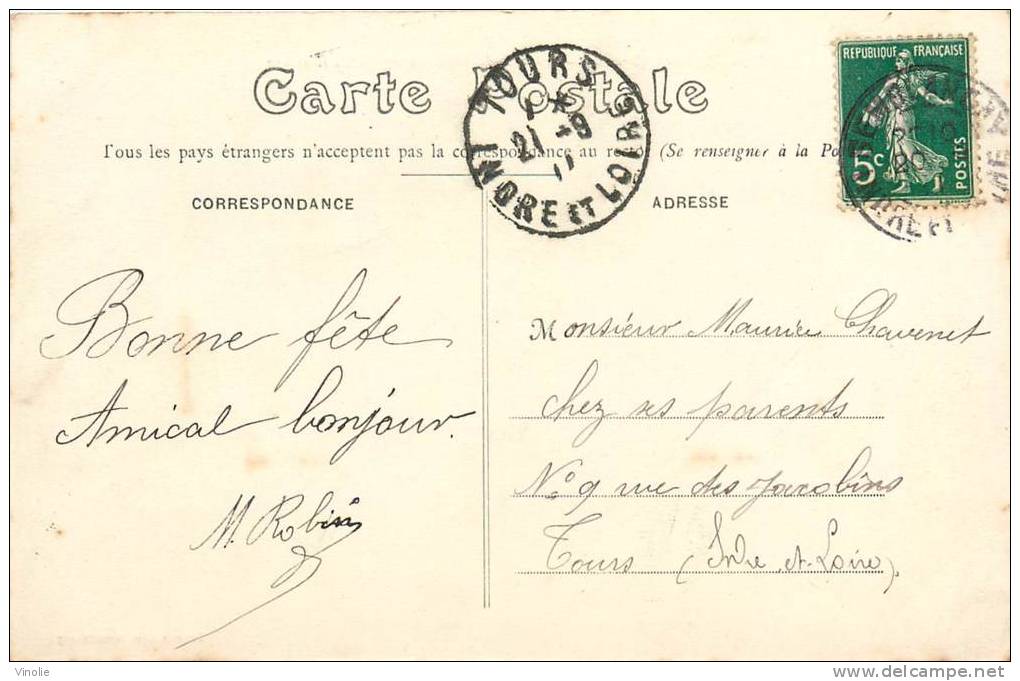 Carte Postale
Tous les pays étrangers n'acceptent pas la correspondance au recto (Se renseigner à la Po
CORRESPONDANCE
ADRESSE
REPUBLIQUE FRANÇAISE
5c
POSTES
TOURS
1* 
21 -9
11
INDRE ET LOIRE
Bonne fête
Amical bonjour.
M. Robin
Monsieur Maurice Chavenet
chez ses parents
No 9 rue des Jacobins
Tours (Indre-et-Loire).
Vinolie
www.delcampe.net